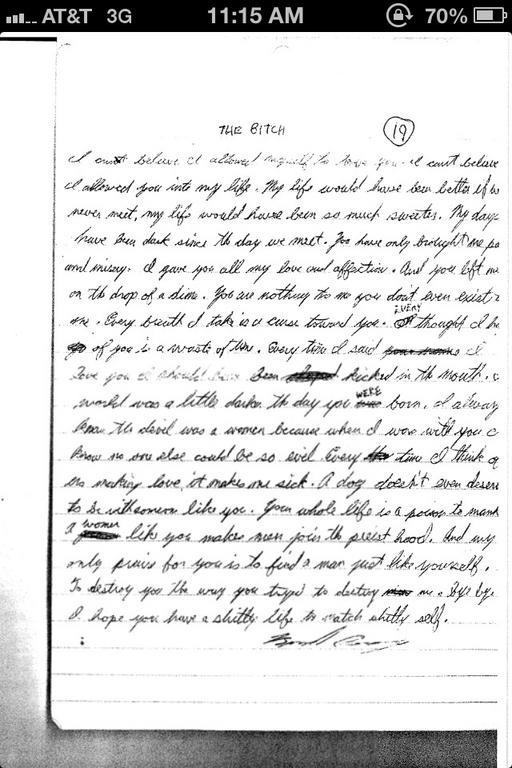 AT&T 3G 11:15 AM 70%
THE BITCH 19
I can't believe I allowed myself to love you. I can't believe
I allowed you into my life. My life would have been better if w
never meit, my life would have been so much sweeter. My day
have been dark since th day we meet. You have only brought me pa
and misery. I gave you all my love and affection. And you left me
on th drop of a dime. You are nothing to me you don't even exist
me. Every breath I take is a curse toward you. EVERY thought I ha
of you is a waste of time. Every time I said I
love you I should have been kicked in th mouth.
world was a little darker th day you WERE born. I alway
know th devil was a women because when I was with you
know no one else could be so evil Every time I think o
us making love, it makes me sick. A dog doesn't even deserv
to be with someone like you. Your whole life is a poison to mank
a women like you makes men join th preist hood. And my
only praise for you is to find a man just like yourself.
To destroy you the way you tryed to destroy me. Bye bye
I hope you have a shitty life to match shitty self.